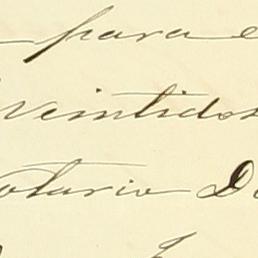 para
veintidos
otario D